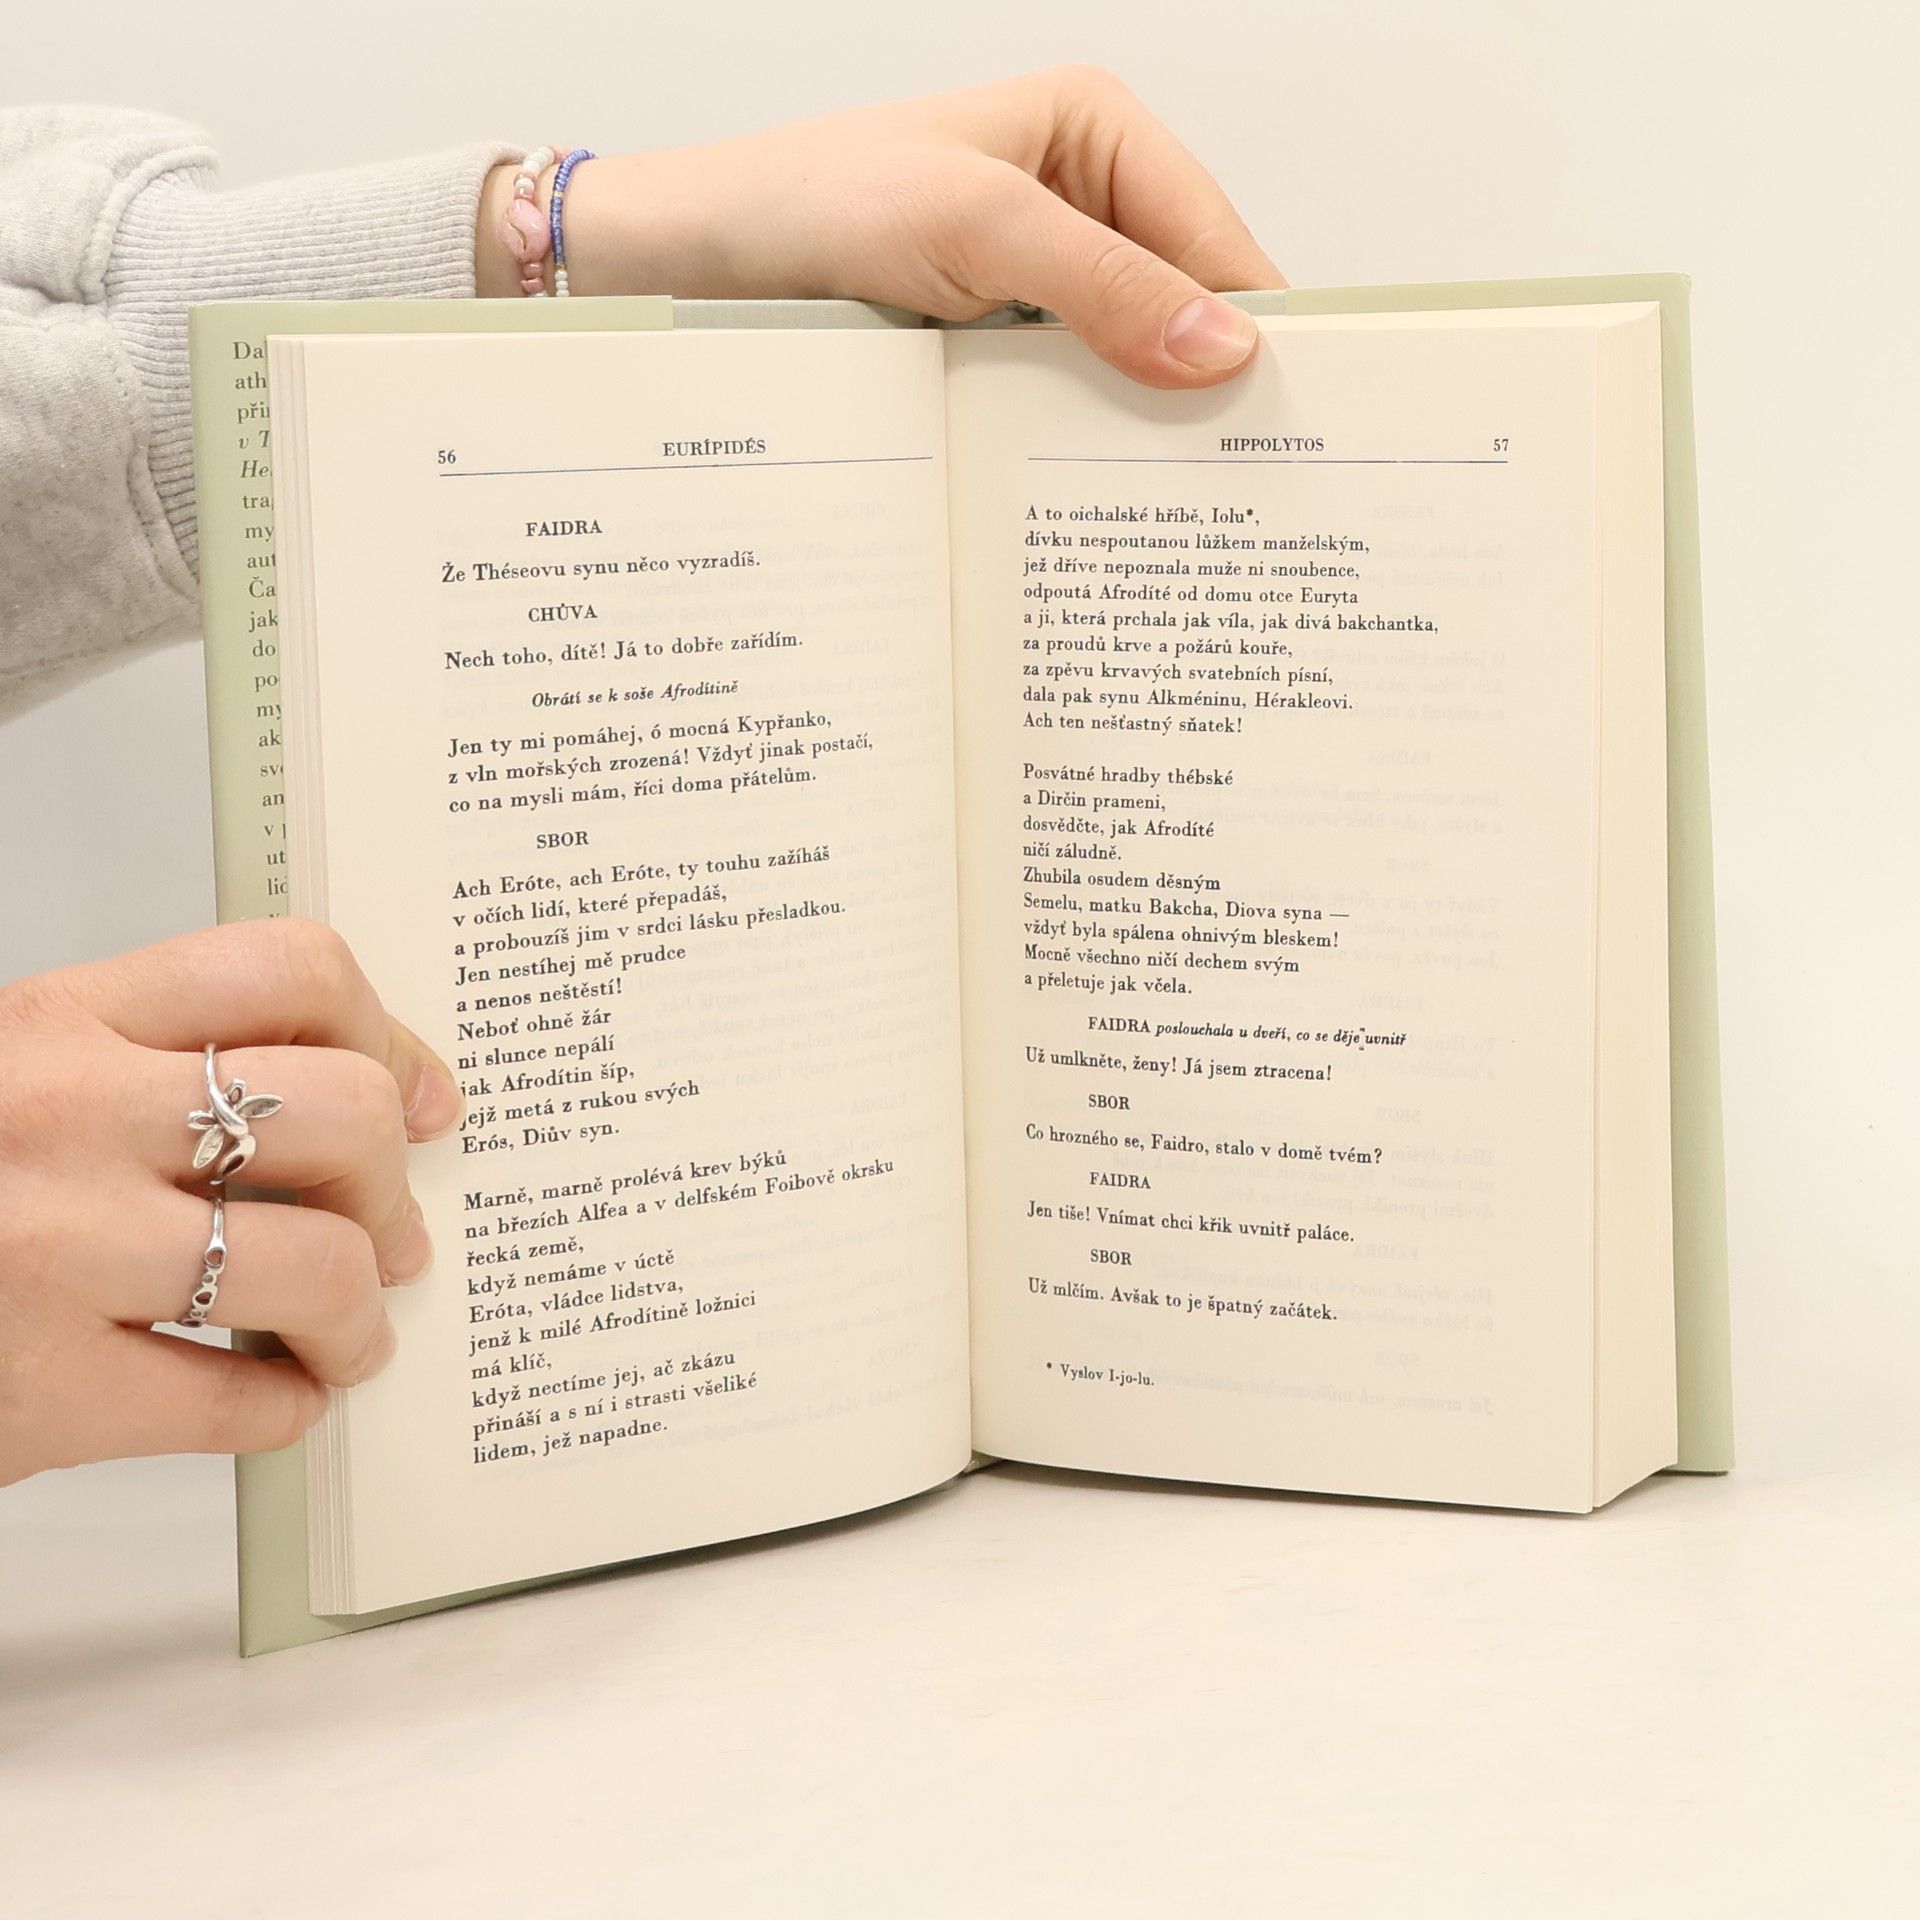 Da
ath
při
v T
He
tra
my
aut
Ča
jak
do
po
my
ak
sv
an
v
ut
lid
56
EURÍPIDÉS
FAIDRA
Že Théseovu synu něco vyzradíš.
CHŮVA
Nech toho, dítě! Já to dobře zařídím.
Obrátí se k soše Afrodítině
Jen ty mi pomáhej, ó mocná Kypřanko,
z vln mořských zrozená! Vždyť jinak postačí,
co na mysli mám, říci doma přátelům.
SBOR
Ach Eróte, ach Eróte, ty touhu zažíháš
v očích lidí, které přepadáš,
a probouzíš jim v srdci lásku přesladkou.
Jen nestíhej mě prudce
a nenos neštěstí!
Neboť ohně žár
ni slunce nepálí
jak Afrodítin šíp,
jejž metá z rukou svých
Erós, Diův syn.
Marně, marně prolévá krev býků
na březích Alfea a v delfském Foibově okrsku
řecká země,
když nemáme v úctě
Eróta, vládce lidstva,
jenž k milé Afrodítině ložnici
má klíč,
když nectíme jej, ač zkázu
přináší a s ní i strasti všeliké
lidem, jež napadne.
HIPPOLYTOS
57
A to oichalské hříbě, Iolu*,
dívku nespoutanou lůžkem manželským,
jež dříve nepoznala muže ni snoubence,
odpoutá Afrodíté od domu otce Euryta
a ji, která prchala jak víla, jak divá bakchantka,
za proudů krve a požárů kouře,
za zpěvu krvavých svatebních písní,
dala pak synu Alkméninu, Hérakleovi.
Ach ten nešťastný sňatek!
Posvátné hradby thébské
a Dirčin prameni,
dosvědčte, jak Afrodíté
ničí záludně.
Zhubila osudem děsným
Semelu, matku Bakcha, Diova syna —
vždyť byla spálena ohnivým bleskem!
Mocně všechno ničí dechem svým
a přeletuje jak včela.
FAIDRA poslouchala u dveří, co se děje uvnitř
Už umlkněte, ženy! Já jsem ztracena!
SBOR
Co hrozného se, Faidro, stalo v domě tvém?
FAIDRA
Jen tiše! Vnímat chci křik uvnitř paláce.
SBOR
Už mlčím. Avšak to je špatný začátek.
* Vyslov I-jo-lu.